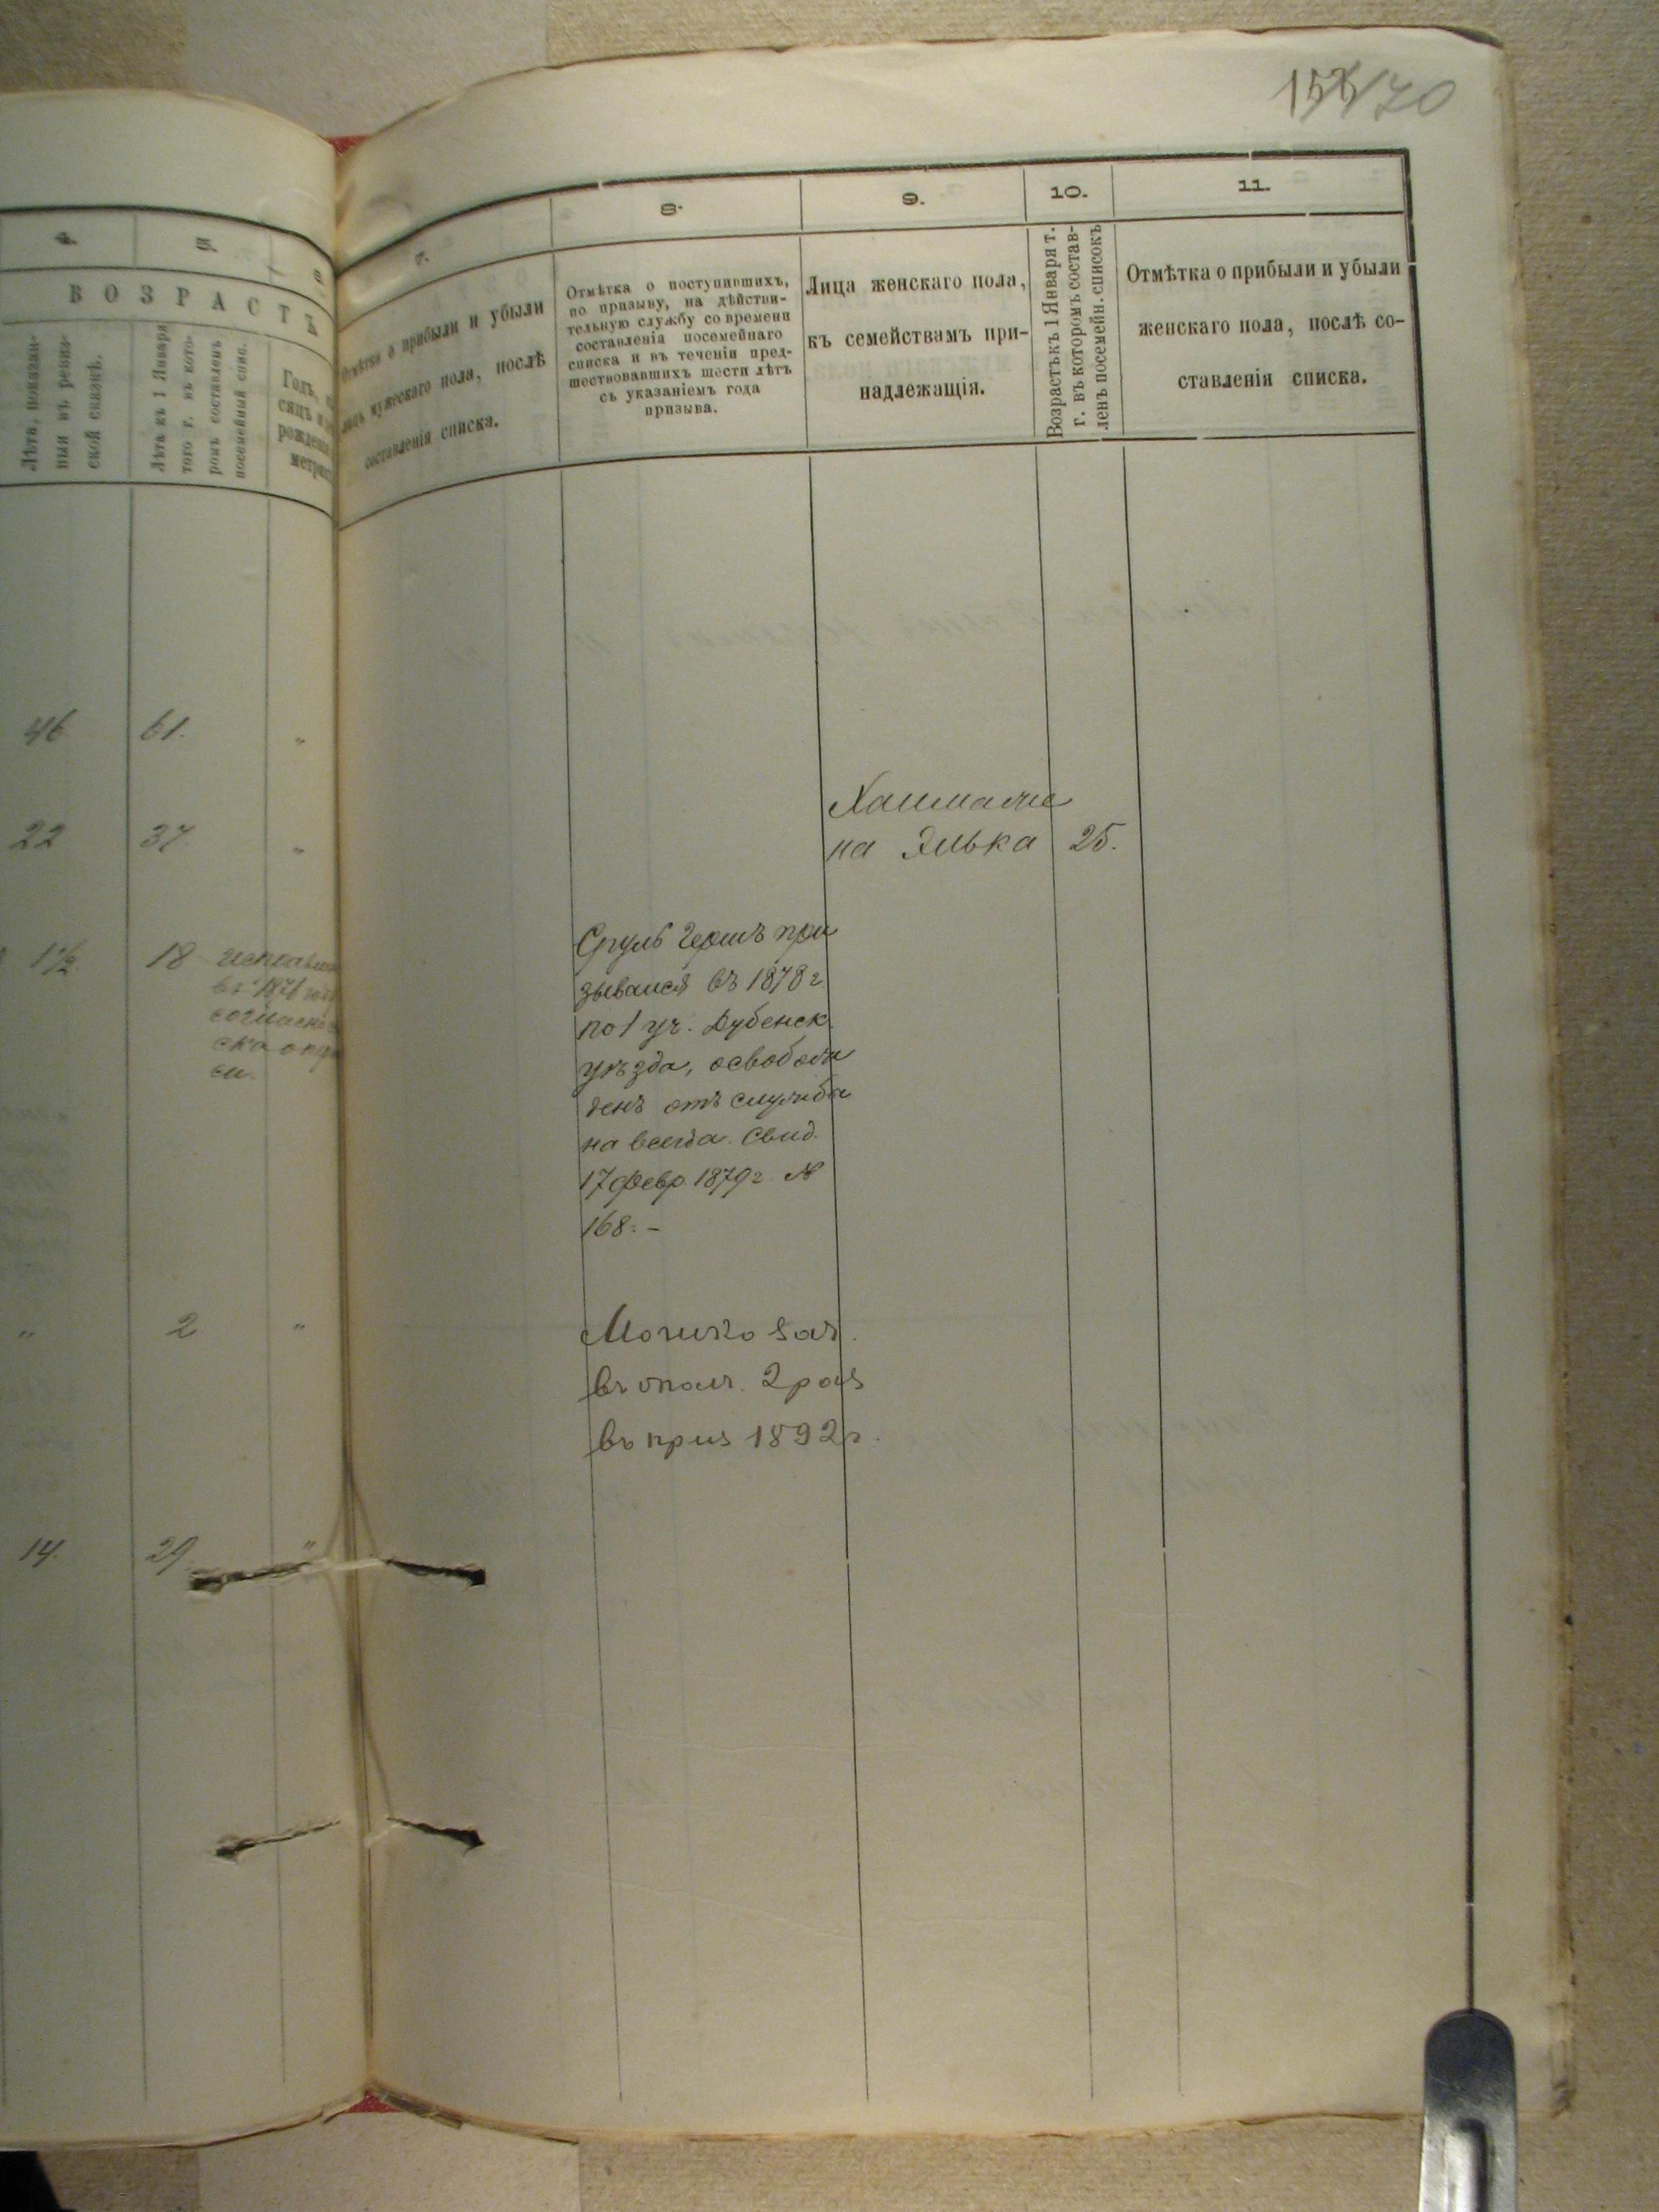 155 170
4.
5.
6
ВОЗРАСТЪ
Лѣта, показан-
ныя въ ревиз-
ской сказкѣ.
Лѣта къ 1 Января
того г. въ кото-
ромъ составленъ
посемейный спис.
Годъ,
сяцъ
рожден
метри
7.
Отмѣтка о прибыли и убыли
лицъ мужескаго пола, послѣ
составленія списка.
8.
Отмѣтка о поступившихъ,
по призыву, на дѣйстви-
тельную службу со времени
составленія посемейнаго
списка и въ теченіи пред-
шествовавшихъ шести лѣтъ
съ указаніемъ года
призыва.
9.
Лица женскаго пола,
къ семействамъ при-
надлежащія.
10.
Возрастъ къ 1 Января т.
г. въ которомъ состав-
ленъ посемейн. списокъ
11.
Отмѣтка о прибыли и убыли
женскаго пола, послѣ со-
ставленія списка.
46 61. "
22 37. "
на Элька 25.
1½ 18
Сруль Гершъ при
зывался въ 1878 г
по 1 уч. Дубенск.
уѣзда, освобож
денъ отъ службы
на всегда. Свид.
17 февр. 1879 г. №
168. –
" 2 "
Мошко зач.
въ опол. 2 раз
въ приз 1892 г.
14. 29 "